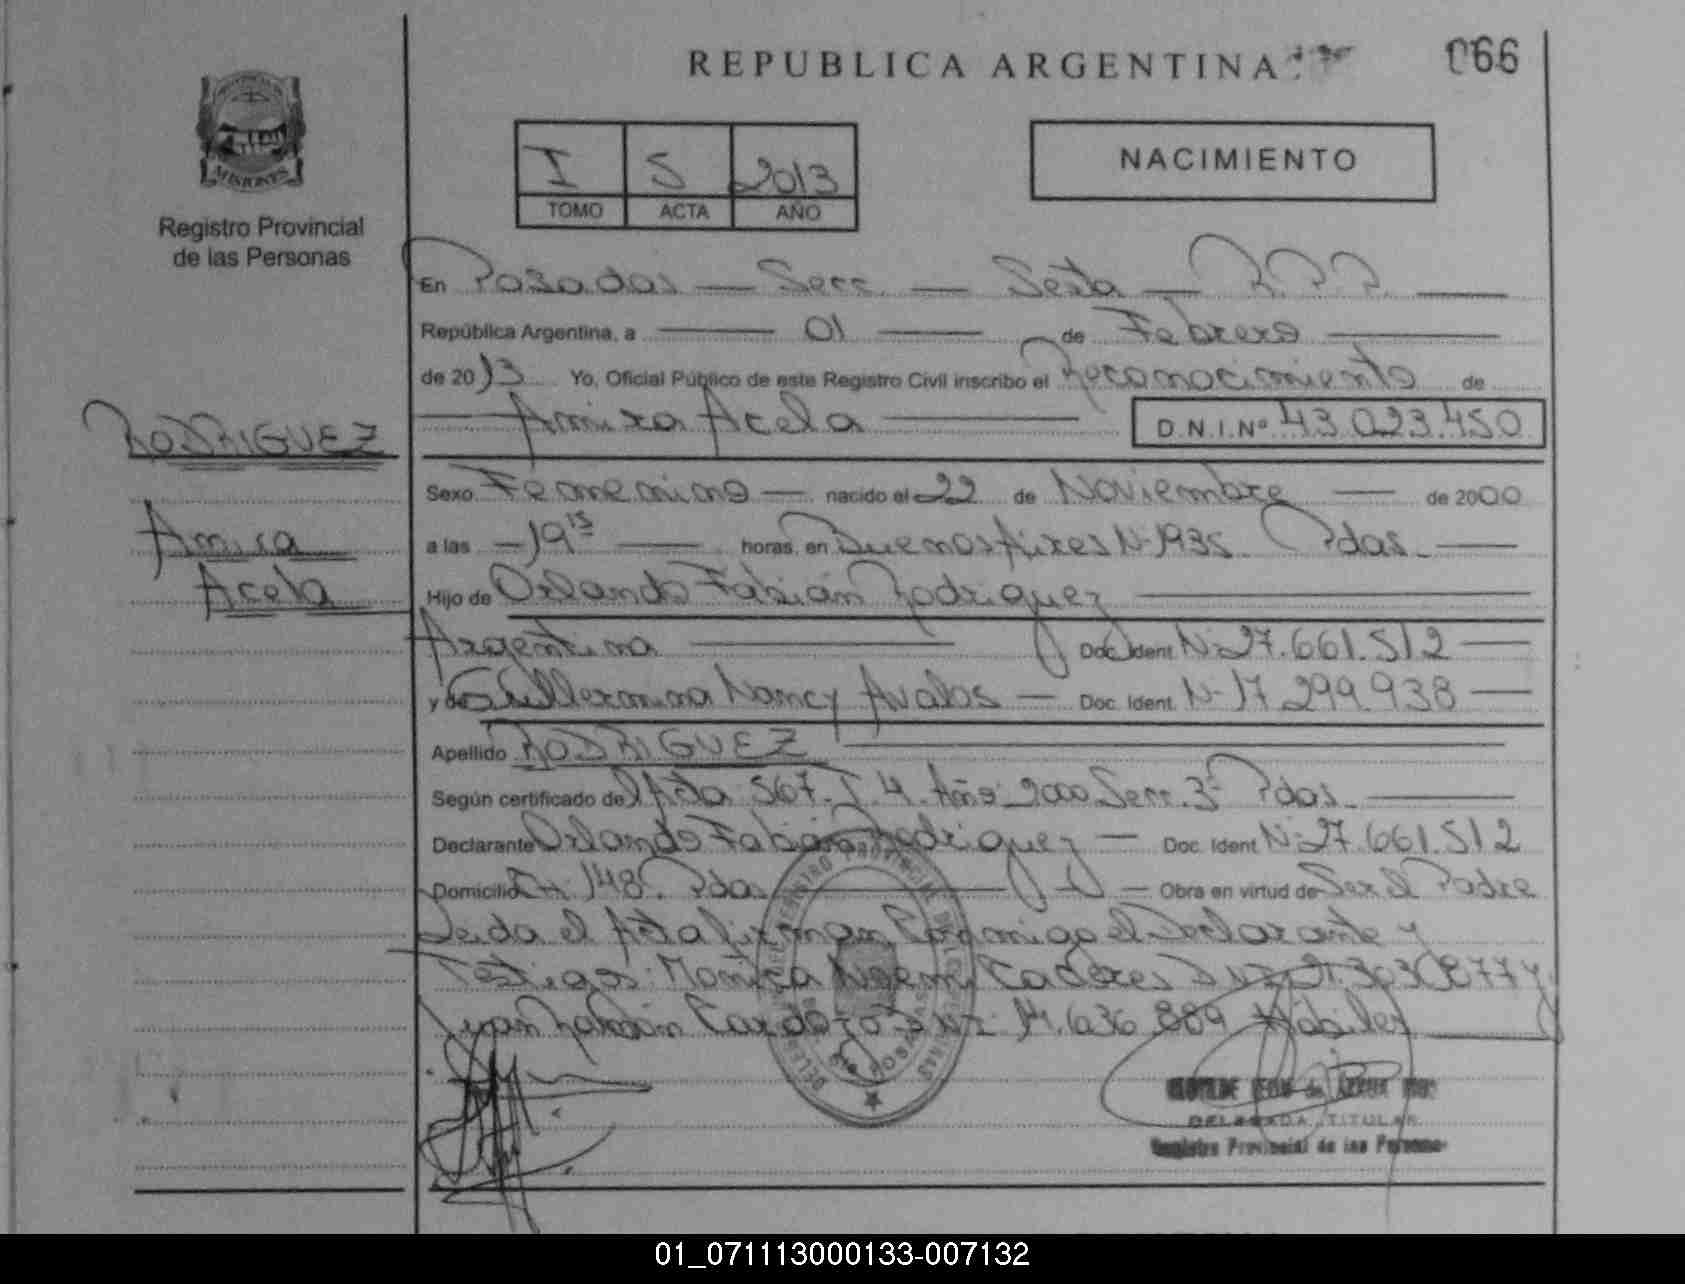 REPUBLICA ARGENTINA
066
MISIONES
Registro Provincial
de las Personas
I 5 2013
TOMO ACTA AÑO
NACIMIENTO
En Posadas — Secc. — Sexta — R.P.P.
República Argentina, a 01 de Febrero
de 2013 Yo, Oficial Público de este Registro Civil inscribo el Reconocimiento de
Amira Acela D.N.I.Nº 43.023.450
RODRIGUEZ
Amira
Acela
Sexo Femenino — nacido el 22 de Noviembre — de 2000
a las — 19 15 — horas, en Buenos Aires N- 1935 Pdas. —
Hijo de Orlando Fabián Rodriguez
Argentina Doc. Ident. N: 27.661.512 —
y de Guillermina Nancy Avalos — Doc. Ident. N- 17.299.938 —
Apellido RODRIGUEZ
Según certificado del Acta 567. T. 4. Año 2000 Secc. 3ª Pdas. —
Declarante Orlando Fabián Rodriguez — Doc. Ident N: 27.661.512
Domicilio Ch. 148. Pdas. — Obra en virtud de Ser el Padre
Leida el Acta firman Conmigo el Declarante y
Testigos: Monica Noemi Caceres DNI: 21.303.877 y
Juan Ramón Cardozo DNI: 14.636.889 Hábiles
DELEGADA TITULAR
Registro Provincial de las Personas
01_071113000133-007132